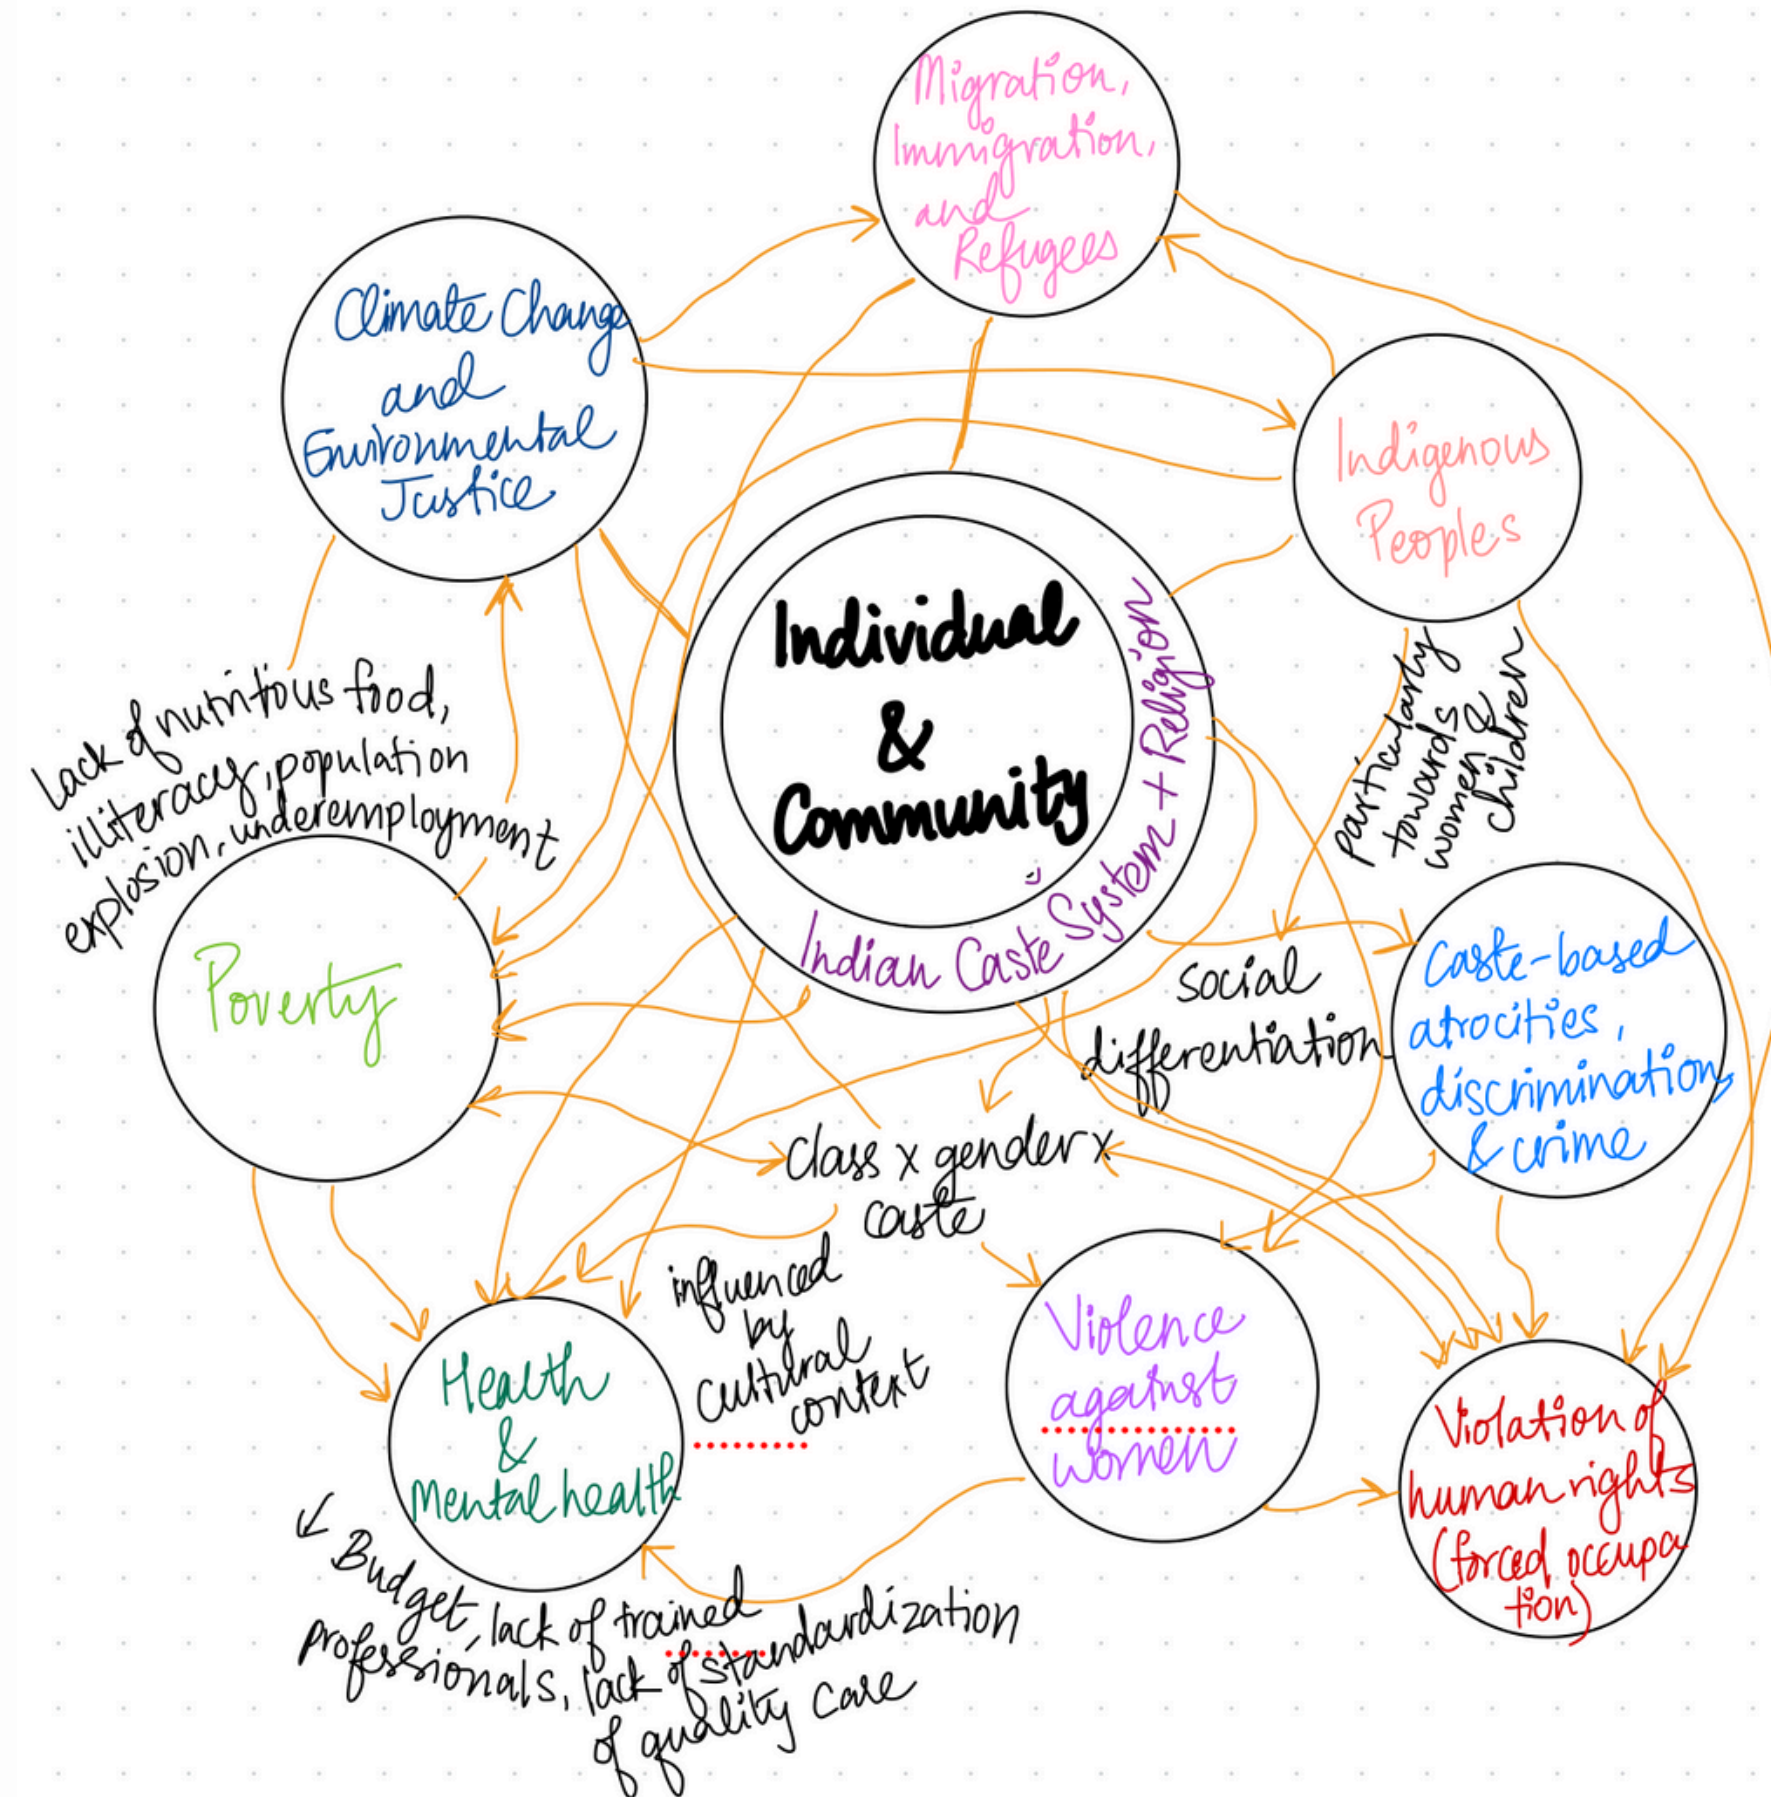 Migration,
Immigration,
and
Refugees
Climate Change
and
Environmental
Justice
Indigenous
Peoples
Individual
&
Community
Indian Caste System + Religion
particularly
towards
women &
children
lack of nutritious food,
illiteracy, population
explosion, underemployment
Poverty
social
differentiation
Caste-based
atrocities,
discrimination,
& crime
class x gender x
caste
influenced
by
cultural
context
Health
&
Mental health
Violence
against
women
Violation of
human rights
(forced occupa
tion)
Budget, lack of trained
professionals, lack of standardization
of quality care